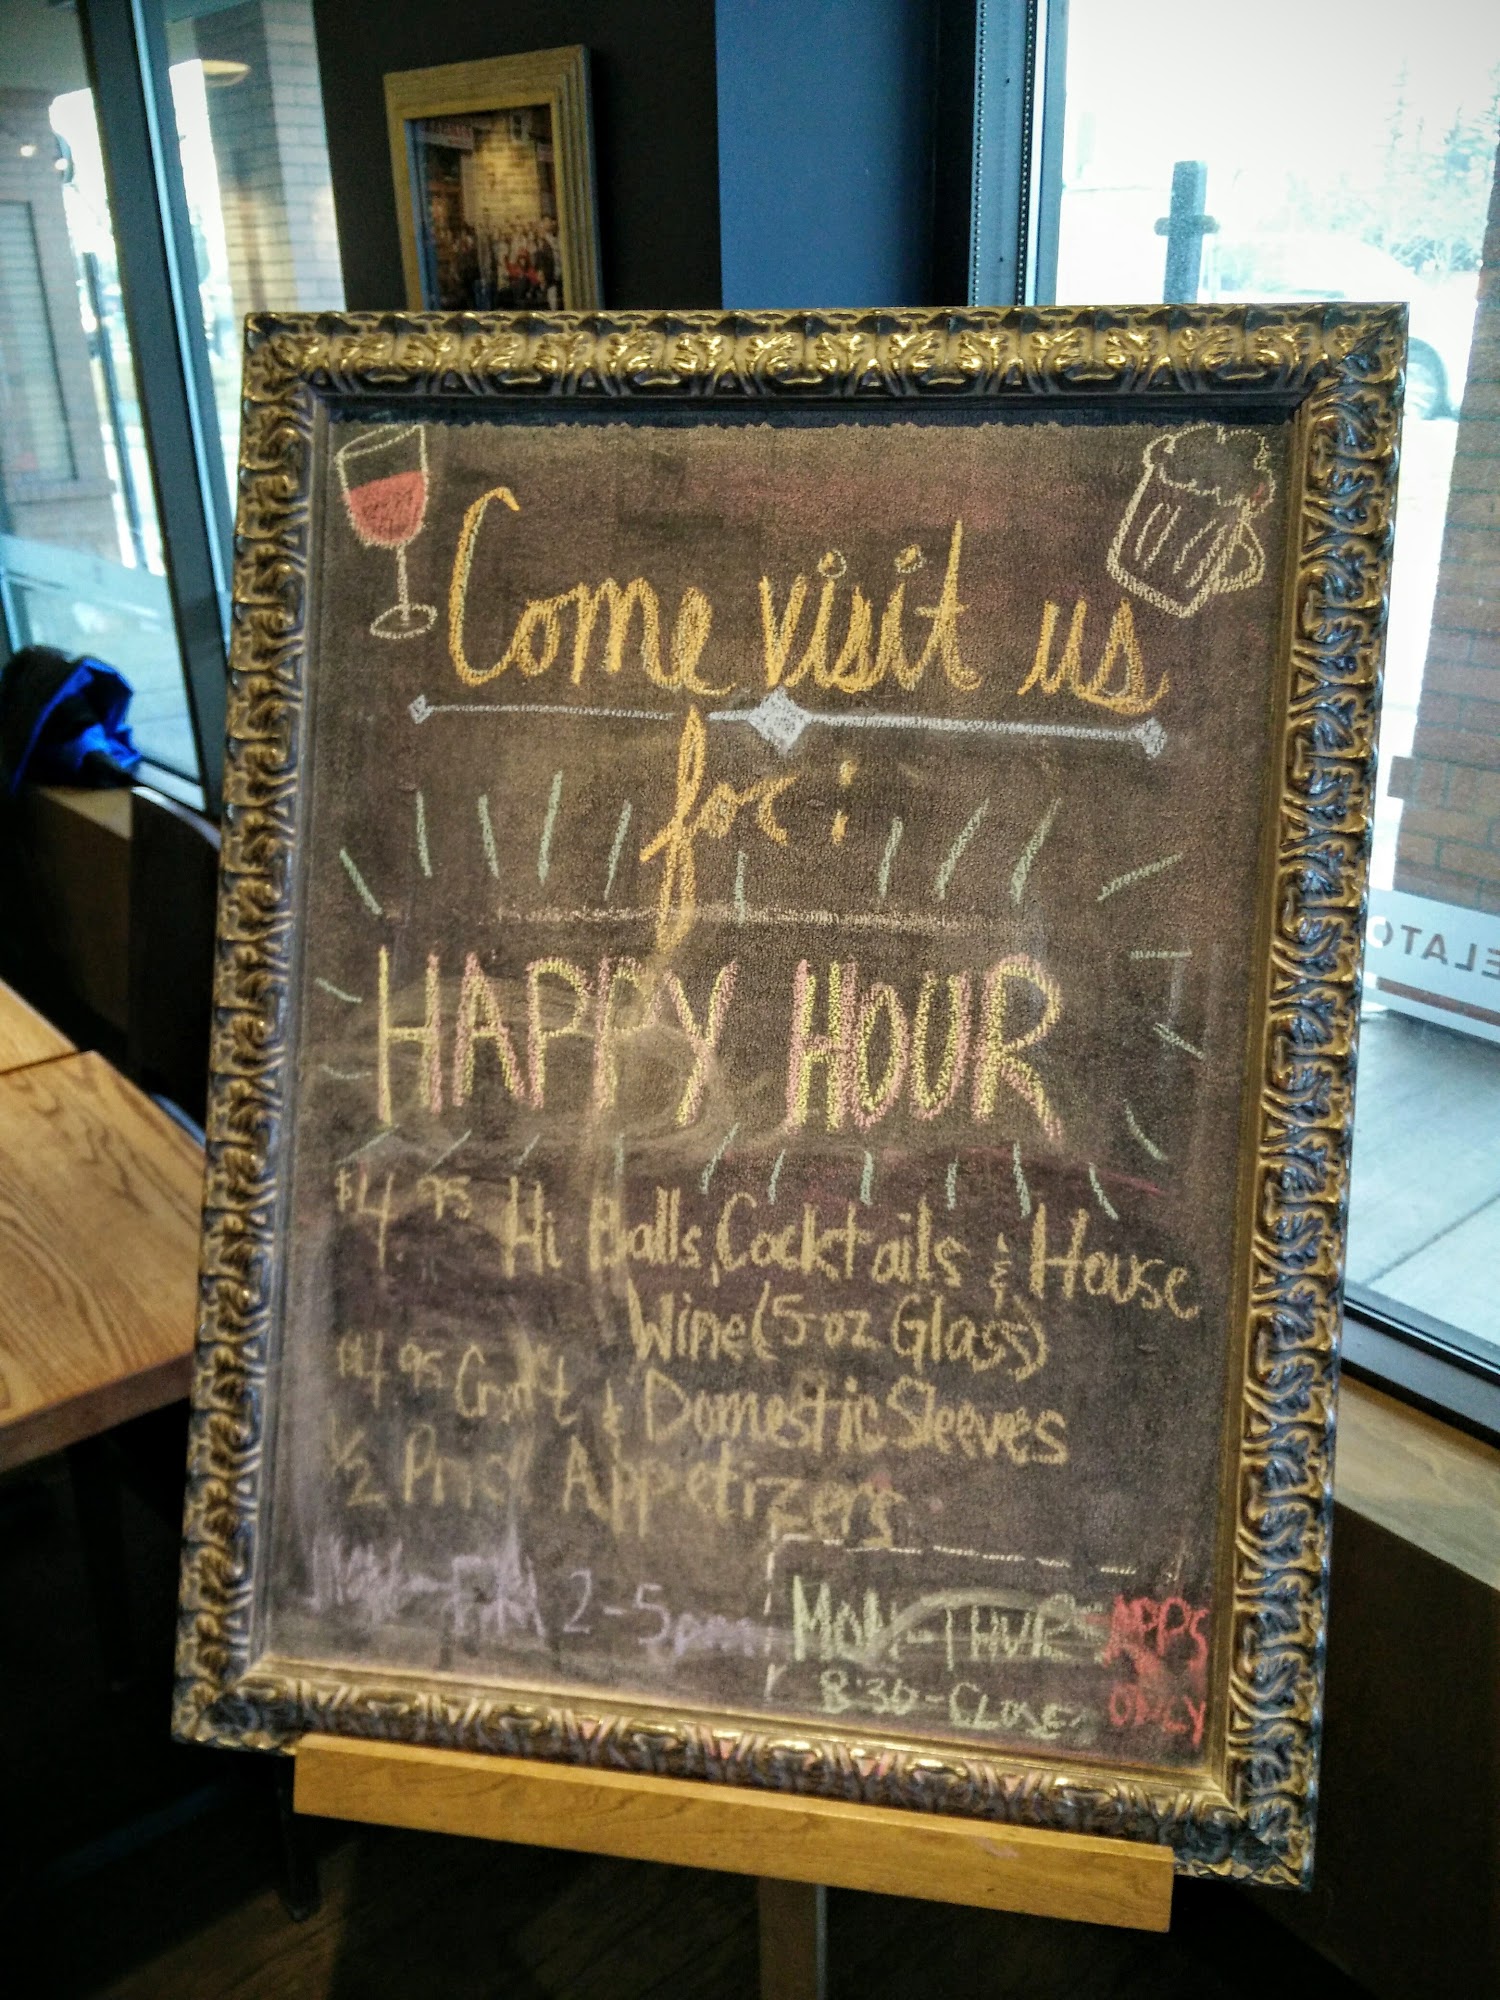 Come visit us
for:
HAPPY HOUR
$4.95 Hi Balls, Cocktails & House
Wine (5oz Glass)
$4.95 Craft & Domestic Sleeves
1/2 Price Appetizers
2-5pm
MON-THUR APPS
8:30-CLOSE ONLY
ELATO